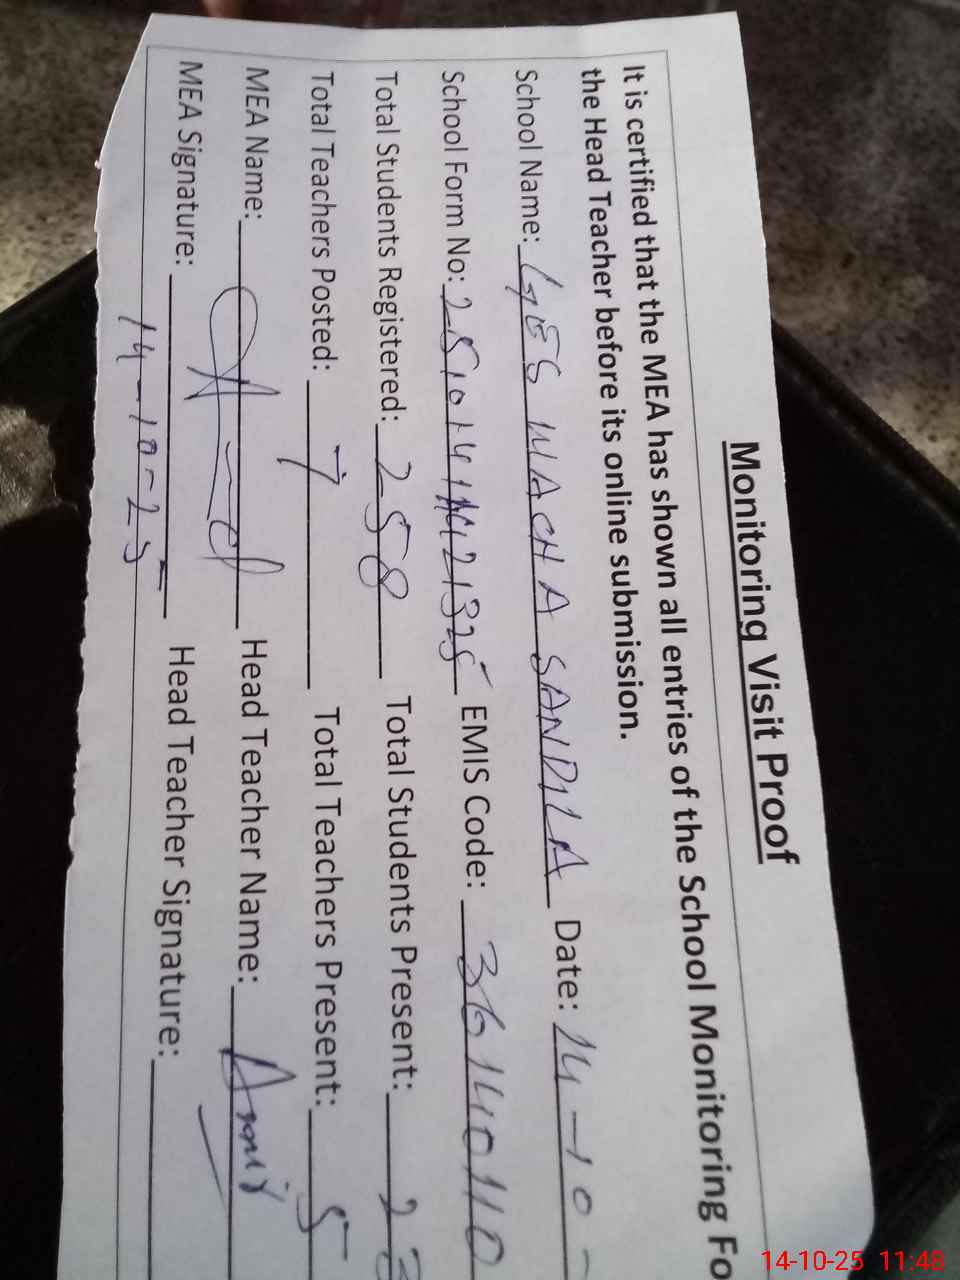 Monitoring Visit Proof
It is certified that the MEA has shown all entries of the School Monitoring Fo
the Head Teacher before its online submission.
School Name: GES MACHA SANDILA Date: 14-10-
School Form No: EMIS Code: 36140110
Total Students Registered: 258 Total Students Present: 23
Total Teachers Posted: 7 Total Teachers Present: 5
MEA Name: Head Teacher Name:
MEA Signature: Head Teacher Signature:
14-10-25
14-10-25 11:48